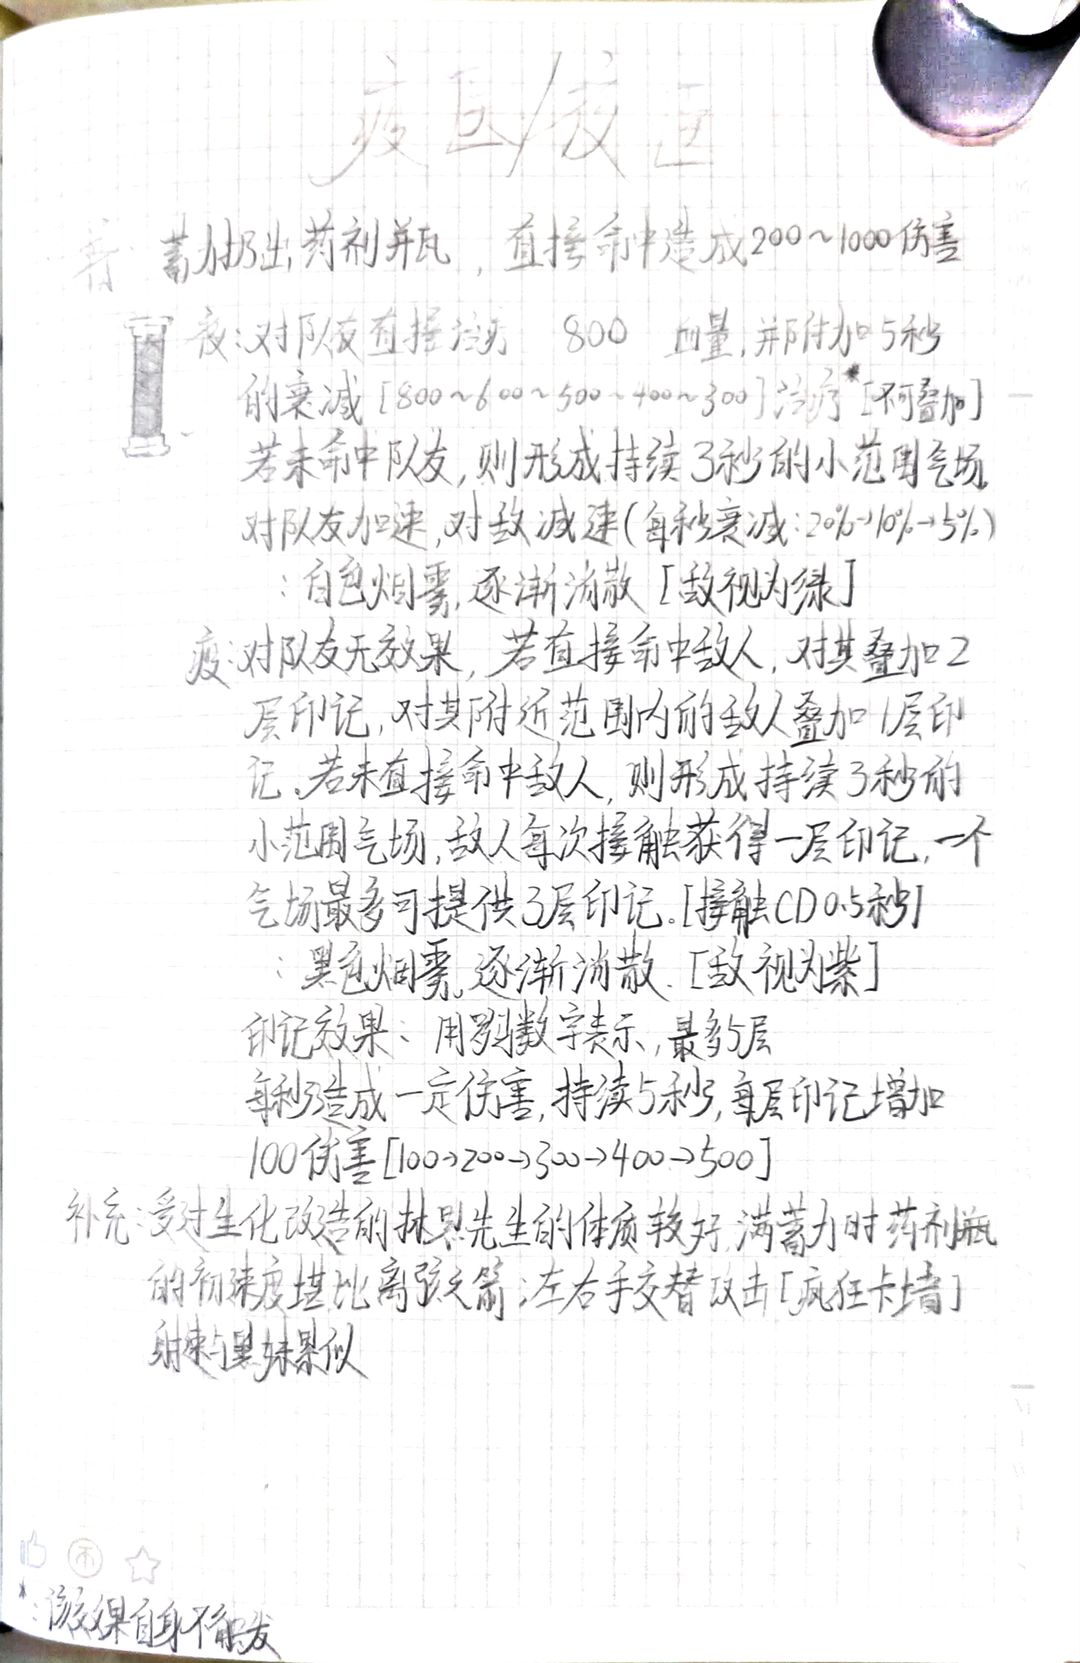 疫医/夜医
普: 蓄力扔出药剂瓶，直接命中造成200~1000伤害
夜:对队友直接治疗 800 血量,并附加5秒
的衰减[800~600~500~400~300]治疗*[不可叠加]
若未命中队友,则形成持续3秒的小范围气场,
对队友加速,对敌减速(每秒衰减:20%→10%→5%)
:白色烟雾,逐渐消散[敌视为绿]
疫:对队友无效果,若直接命中敌人,对其叠加2
层印记,对其附近范围内的敌人叠加1层印
记。若未直接命中敌人,则形成持续3秒的
小范围气场,敌人每次接触获得一层印记,一个
气场最多可提供3层印记。[接触CD0.5秒]
:黑色烟雾,逐渐消散.[敌视为紫]
印记效果:用罗马数字表示,最多5层
每秒造成一定伤害,持续5秒,每层印记增加
100伤害[100→200→300→400→500]
补充:受过生化改造的林恩先生的体质较好,满蓄力时药剂瓶
的初速度堪比离弦之箭;左右手交替攻击[疯狂卡墙]
射速与黑妹累似
币
*:该效果自身不触发